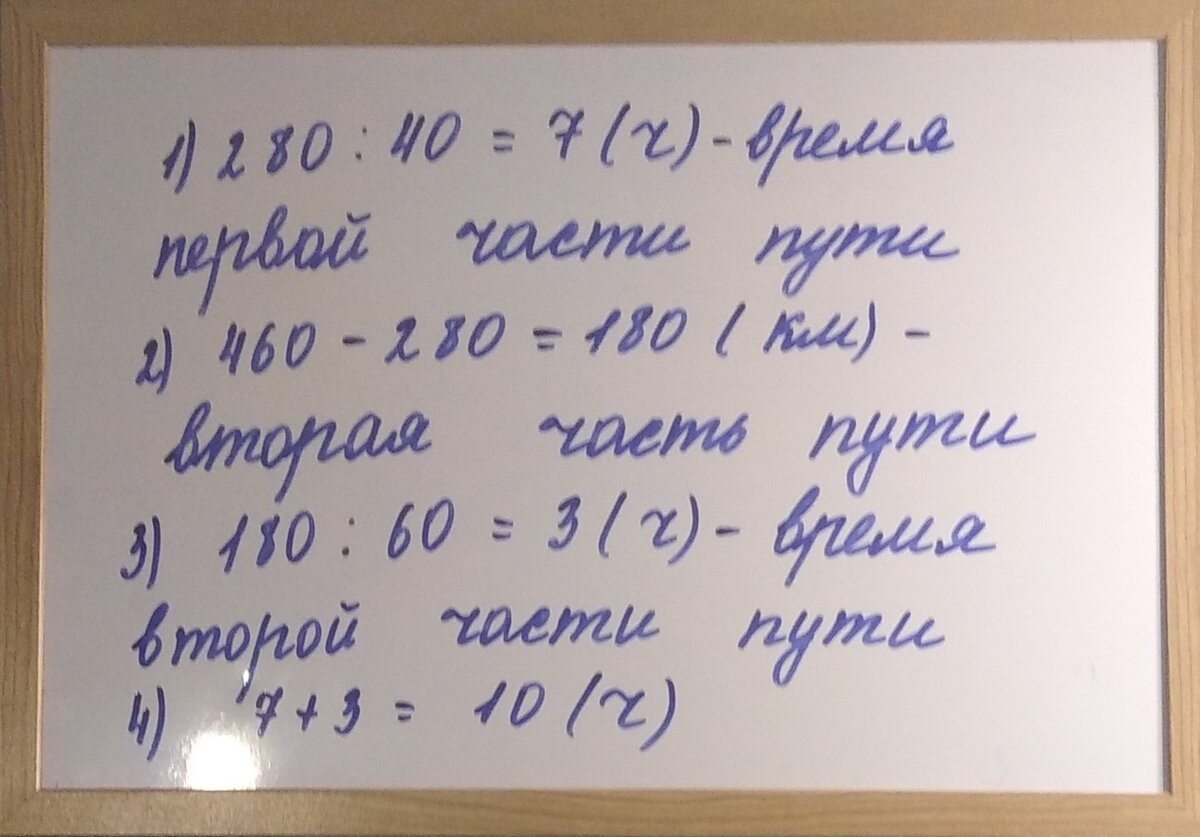 1) 280 : 40 = 7 (ч) - время
первой части пути
2) 460 - 280 = 180 (км) -
вторая часть пути
3) 180 : 60 = 3 (ч) - время
второй части пути
4) 7 + 3 = 10 (ч)